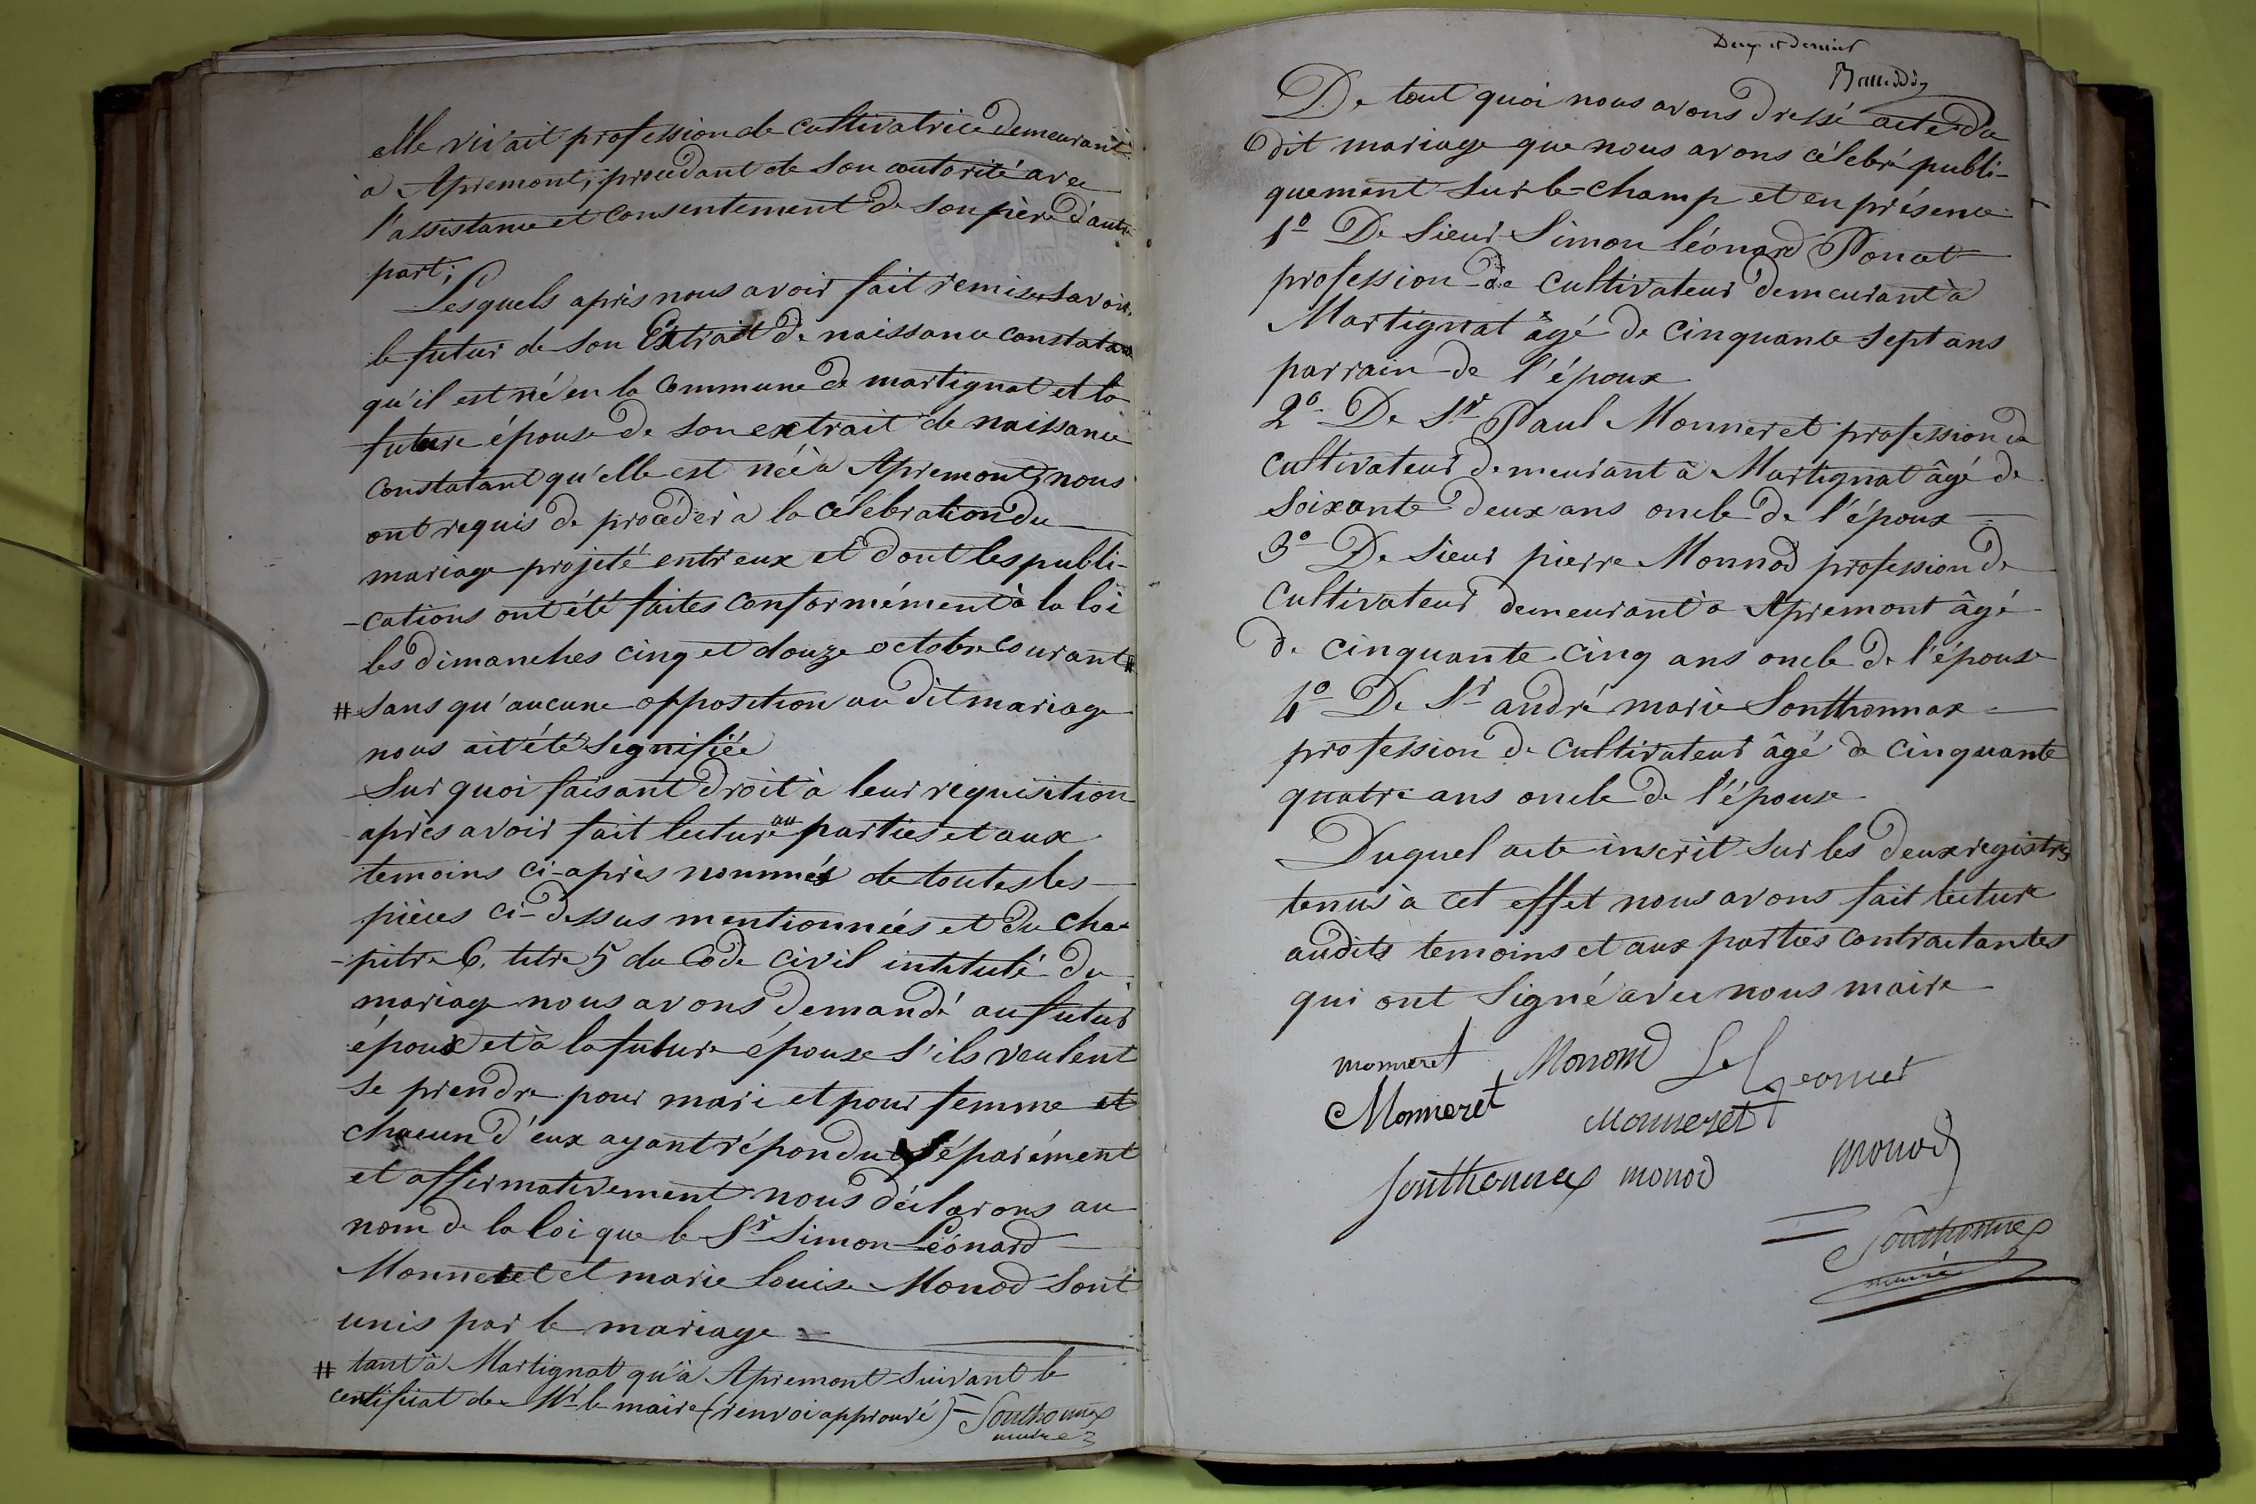 elle vivait profession de cultivatrice demeurant
à Apremont, procédant de son autorité avec
l'assistance et consentement de son père d'autre
part;
Lesquels après nous avoir fait remise savoir,
le futur de son Extrait de naissance constatant
qu'il est né en la commune de martignat et la
future épouse de son extrait de naissance
constatant qu'elle est née à Apremont, nous
ont requis de procéder à la célébration du
mariage projeté entr eux et dont les publi-
-cations ont été faites conformément à la loi
les dimanches cinq et douze octobre courant #
# sans qu'aucune opposition au dit mariage
nous ait été signifiée
Sur quoi faisant droit à leur requisition
après avoir fait lecture au parties et aux
temoins ci-après nommés de toutes les
pièces ci-dessus mentionnées et du cha-
-pitre 6. titre 5 du Code civil intitulé du
mariage nous avons demandé au futur
époux et à la future épouse s'ils veulent
se prendre pour mari et pour femme et
chacun d'eux ayant répondu séparément
et affirmativement nous déclarons au
nom de la loi que le Sr Simon Léonard
Monneret et marie Louise Monod sont
unis par le mariage
# tant à Martignat qu'à Apremont suivant le
certificat de Mr le maire (renvoi approuvé) Southonnax
maire
Deux et dernier
De tout quoi nous avons dressé acte du
dit mariage que nous avons célébré publi-
quement sur-le-champ et en présence
1º De Sieur Simon Léonard Ponat
profession de cultivateur demeurant à
Martignat âgé de cinquante sept ans
parrain de l'époux
2º De Sr Paul Monneret profession de
cultivateur demeurant à Martignat âgé de
soixante deux ans oncle de l'époux
3º De Sieur pierre Monnod profession de
cultivateur demeurant à Apremont âgé
de cinquante cinq ans oncle de l'épouse
4º De Sr andré marie Sonthonnax
profession de cultivateur âgé de cinquante
quatre ans oncle de l'épouse
Duquel acte inscrit sur les deux registres
tenus à cet effet nous avons fait lecture
audits temoins et aux parties contractantes
qui ont signé avec nous maire
monneret Monod
Monneret Monneret
Southonnax monod monod
Southonnax
maire